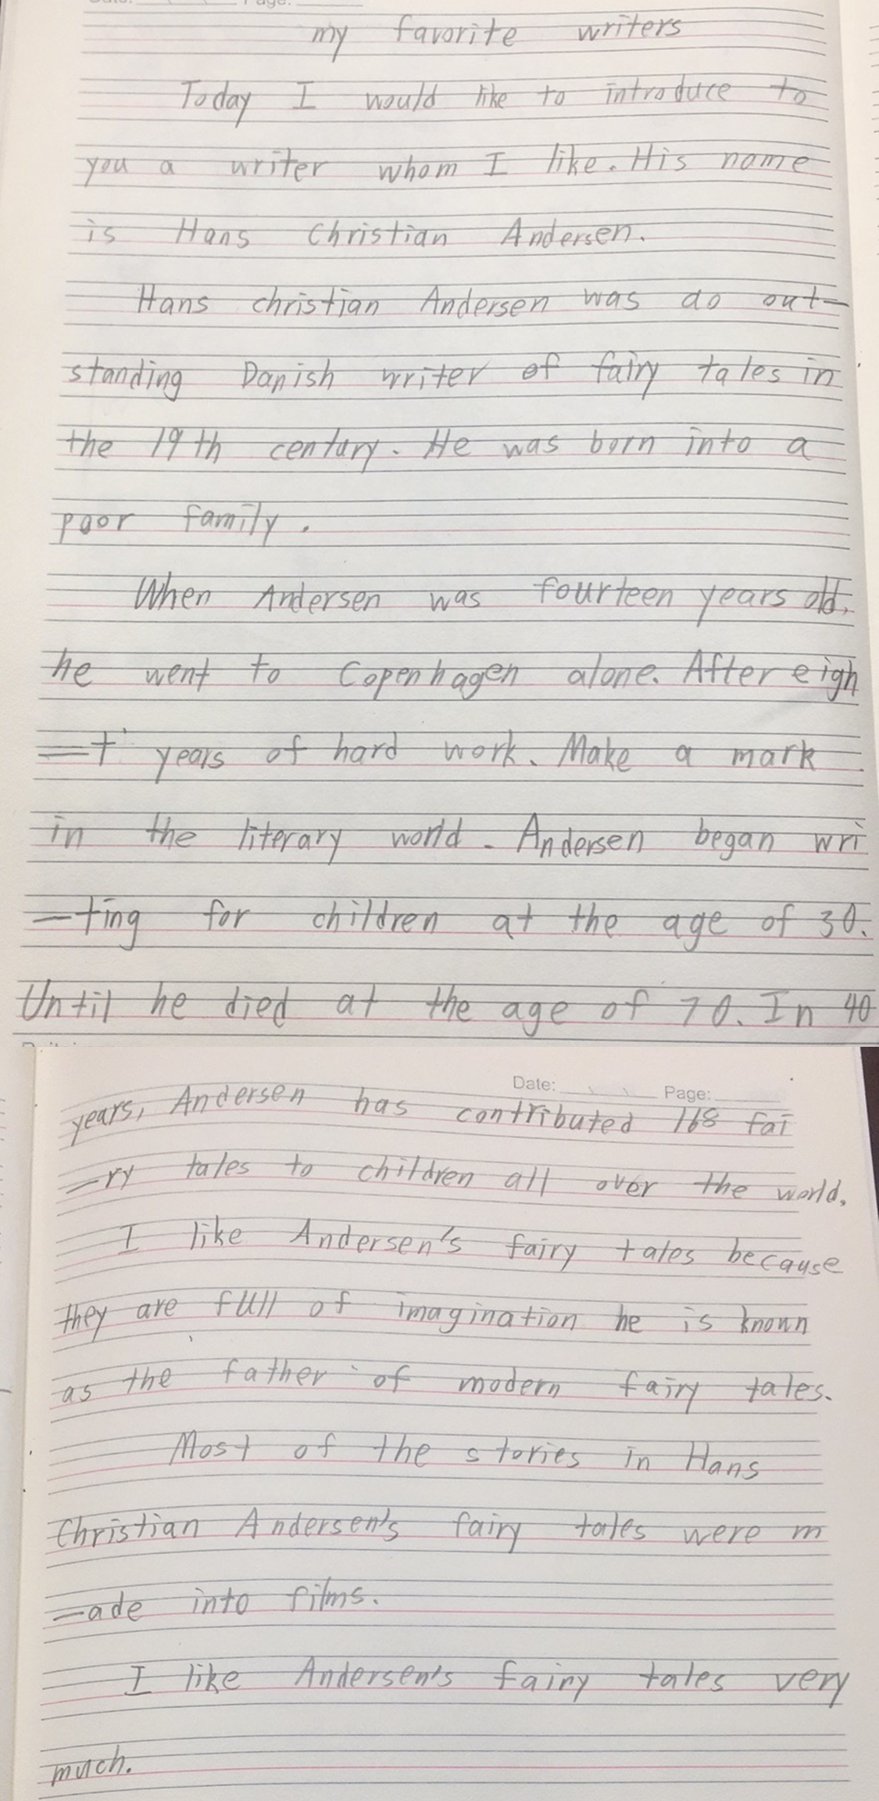 my favorite writers
Today I would like to introduce to
you a writer whom I like. His name
is Hans Christian Andersen.
Hans christian Andersen was ao out-
standing Danish writer of fairy tales in
the 19th century. He was born into a
poor family.
When Andersen was fourteen years old,
he went to Copenhagen alone. After eigh
-t years of hard work. Make a mark
in the literary world. Andersen began wri
-ting for children at the age of 30.
Until he died at the age of 70. In 40
Date: Page:
years, Andersen has contributed 168 fai
-ry tales to children all over the world.
I like Andersen's fairy tales because
they are full of imagination he is known
as the father of modern fairy tales.
Most of the stories in Hans
Christian Andersen's fairy tales were m
-ade into films.
I like Andersen's fairy tales very
much.